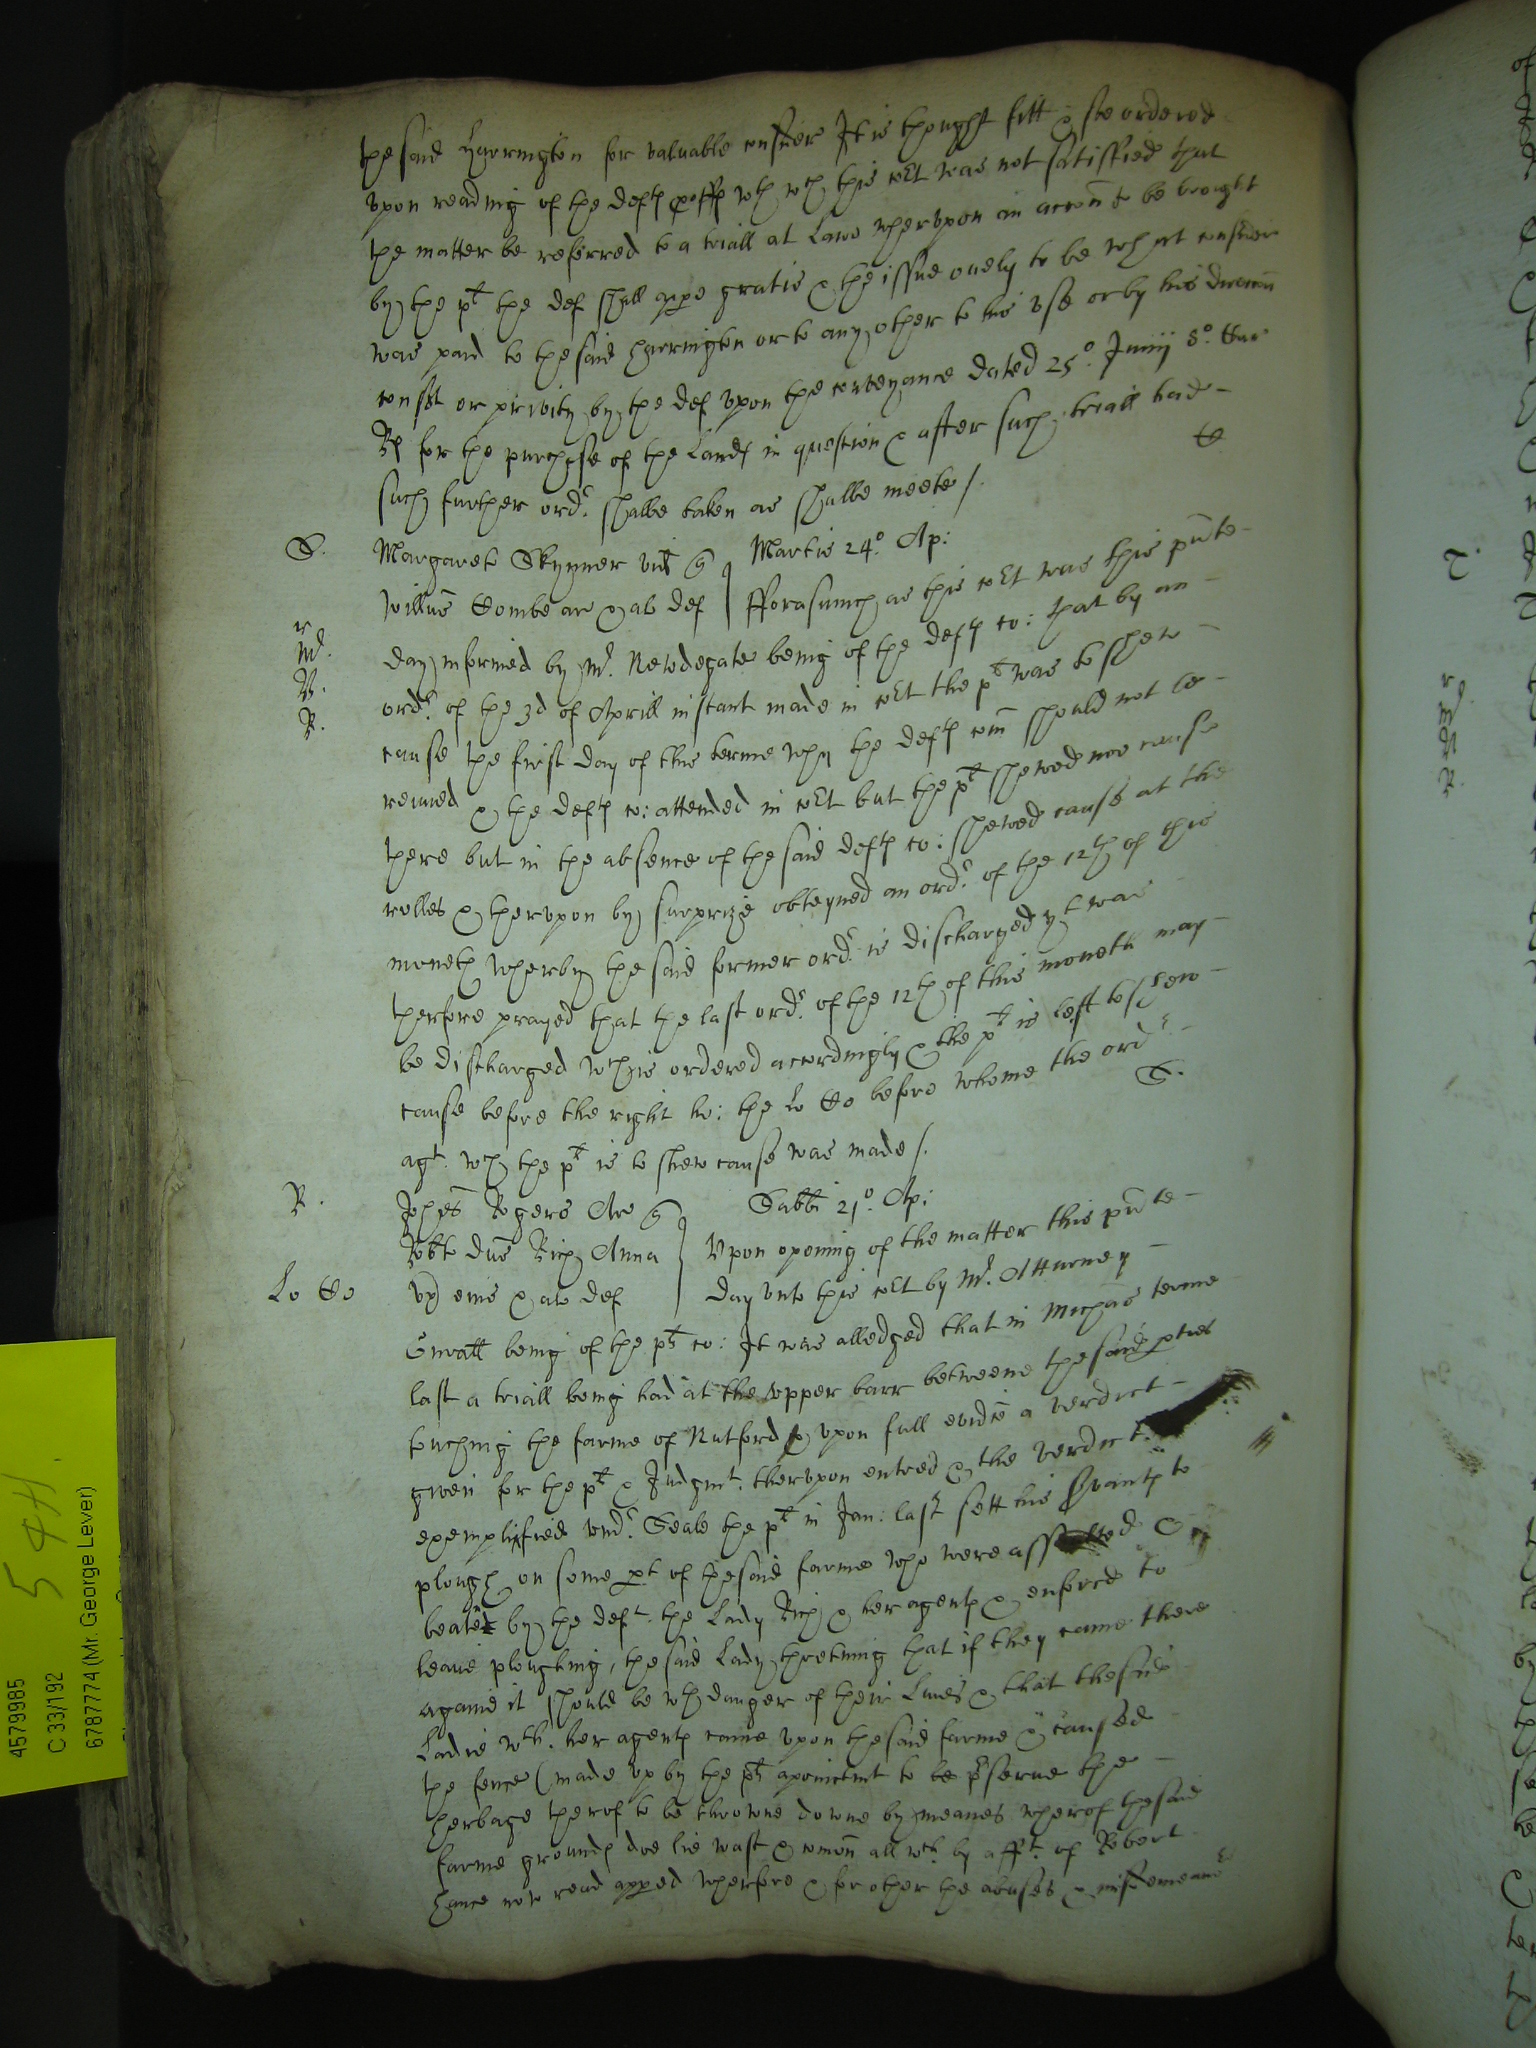 the said Harrington for valuable consider It is thought fitt & soe ordered
upon reading of the defts proffs wth wch this cort was not satisfied that
the matter be referred to a triall at Lawe wherupon an accon to be brought
by the plt the def shall appe gratis & the issue onely to be what consider
was paid to the said Harrington or to any other to his use or by his direccon
consent or privity by the def upon the conveyance dated 25º Junij 8º Car
Rs for the purchase of the Lands in question & after such triall had
such further ordr shalbe taken as shalbe meete /.
S.
Margaret Skynner vid q Martis 24º Ap:
Willus Combe ar & al def fforasmuch as this cort was this pnte
day informed by Mr Newdegate being of the defts co: that by an
r
Mr
B.
R.
ordr of the 3d of Aprill instant made in cort the plt was to shew
cause the first day of this terme why the defts com should not be
renued & the defts co: attended in cort but the plt shewed noe cause
there but in the absence of the said defts co: shewed cause at the
rolles & therupon by surprize obteyned an ordr of the 12th of this
moneth wherby the said former ordr is discharged yt was
therfore prayed that the last ordr of the 12th of this moneth may
be discharged wch is ordered accordingly & the plt is left to shew
cause before the right ho: the Lo Co before whome the ordr
S.
agt wch the plt is to shew cause was made /.
R.
Johes Rogers Ar q Sabbi 21º Ap:
Robte dns Rich Anna Upon opening of the matter this pnte
Lo Co
ux eius & al def day unto this cort by Mr Atturney
Gnrall being of the plts co: It was alledged that in Michas terme
last a triall being had at the upper barr betweene the said pties
touching the farme of Nutford & upon full evidce a verdict
given for the plt & Judgmt therupon entred & the verdict
exemplified undr Seale the plt in Jan: last sett his Srvants to
plough on some pt of the said farme who were assalted &
beaten by the deft the Lady Rich & her agents & enforced to
leave ploughing, the said Lady thretning that if they came there
againe it should be wth danger of their Lives & that the said
Ladie wth her agents came upon the said farme & caused
the fence (made up by the plts apointemt to be pserve the
herbage therof to be throwne downe by meanes wherof the said
farme grounds doe lie wast & comon all wch by afft of Robert
Hance now read appeared wherfore & for other the abuses & misdemeanrs
4579985
C 33/192
6787774 (Mr. George Lever)